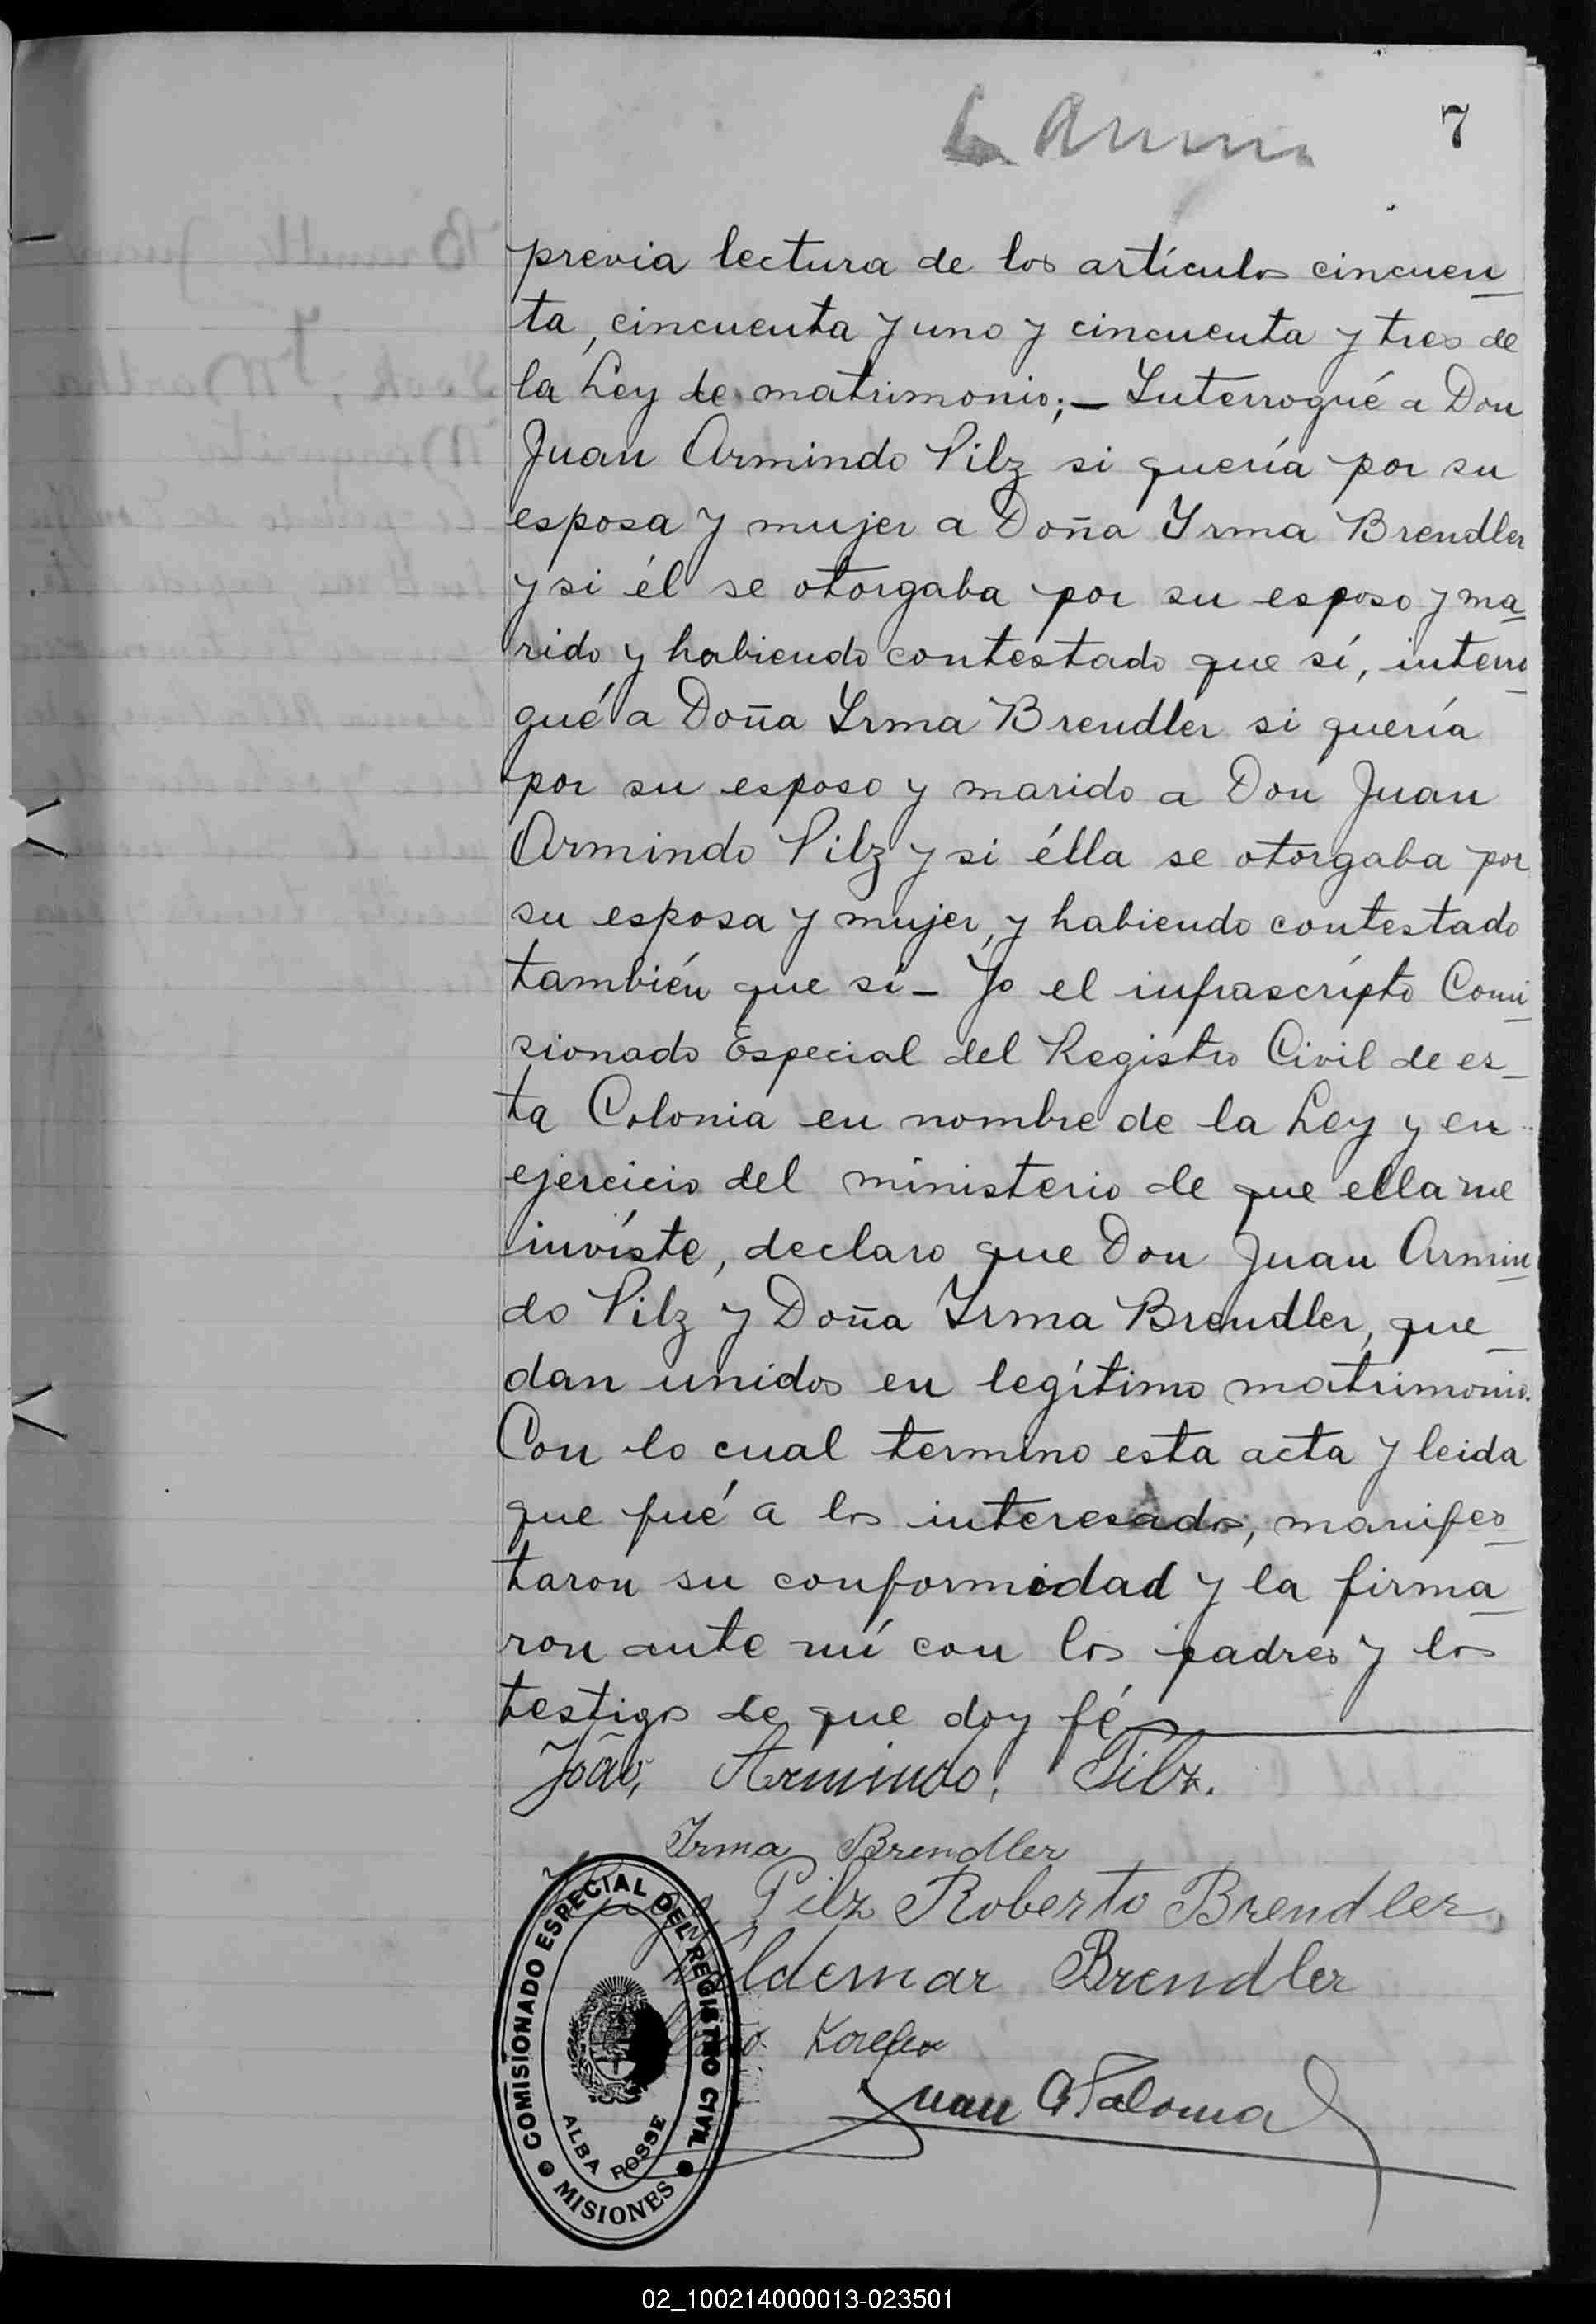 7
previa lectura de los artículos cincuen
ta, cincuenta y uno y cincuenta y tres de
la Ley de matrimonio;— Interrogué a Don
Juan Armindo Pilz si quería por su
esposa y mujer a Doña Yrma Brendler
y si él se otorgaba por su esposo y ma
rido y habiendo contestado que sí, interro
gué a Doña Yrma Brendler si quería
por su esposo y marido a Don Juan
Armindo Pilz y si élla se otorgaba por
su esposa y mujer, y habiendo contestado
también que sí— Yo el infrascrípto Comi
sionado Especial del Registro Civil de es_
ta Colonia en nombre de la Ley y en
ejercicio del ministerio de que ella me
invíste, declaro que Don Juan Armin
do Pilz y Doña Yrma Brendler, que
dan unidos en legítimo matrimonio.
Con lo cual termino esta acta y leida
que fué a los interesados, manifes
taron su conformidad y la firma
ron ante mí con los padres y los
testigos de que doy fé
João, Armindo, Pilz.
Irma Brendler
Pilz Roberto Brendler
Brendler
Juan G Paloma
COMISIONADO ESPECIAL DEL REGISTRO CIVIL
ALBA POSSE
MISIONES
02_100214000013-023501